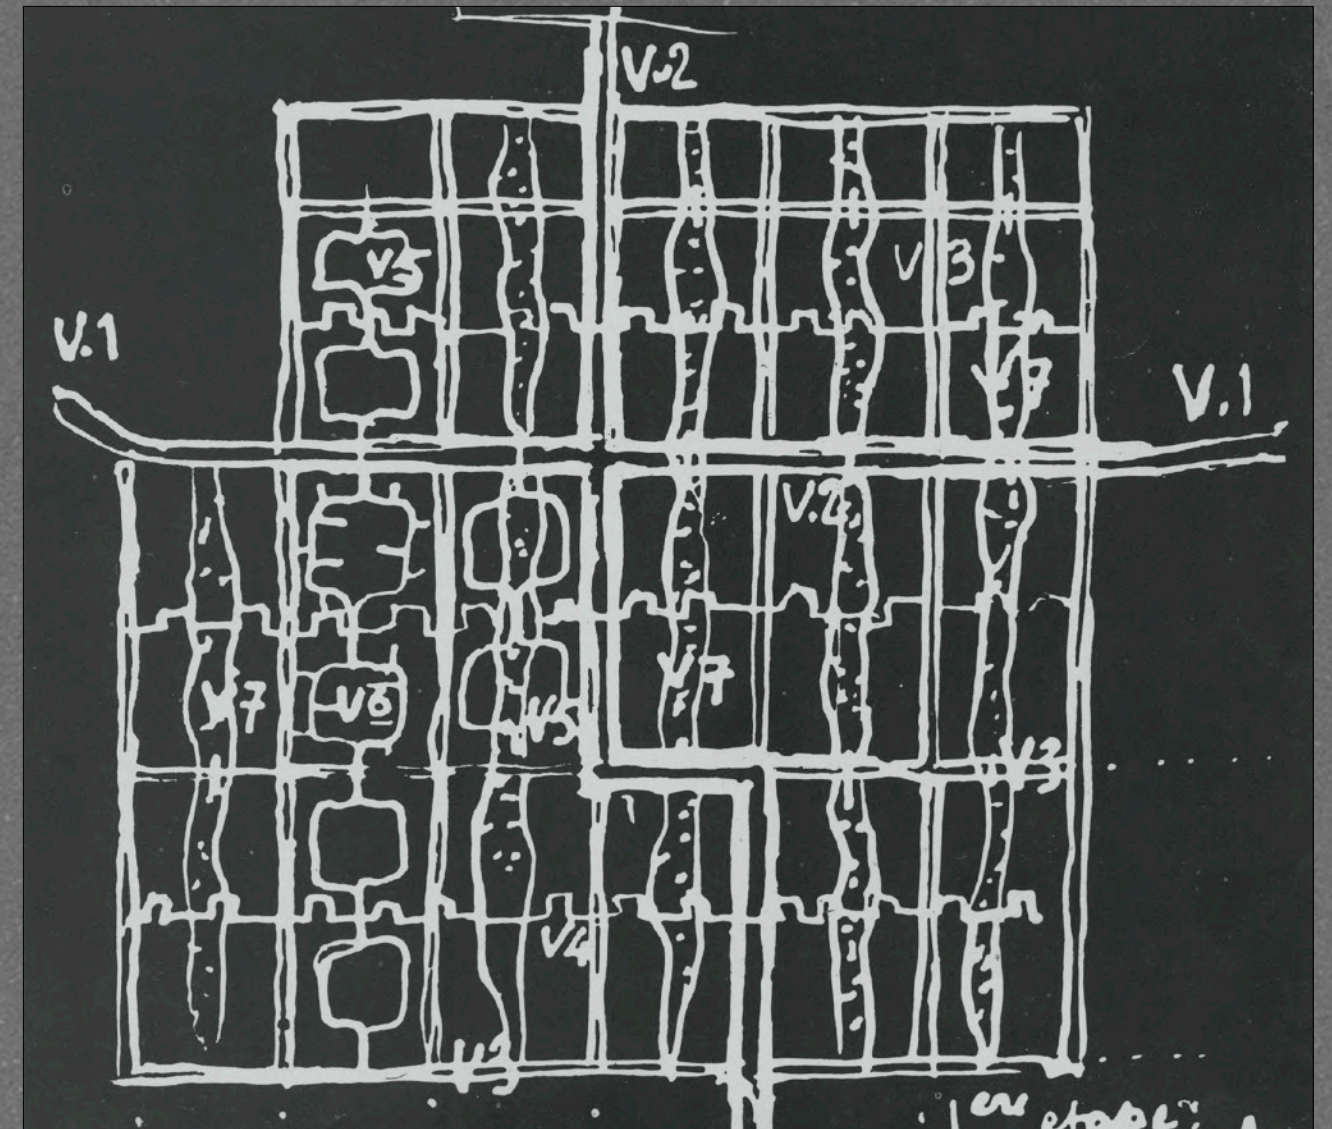 V.2
V5
V3
V.1
V7
V.1
V.2
V7
V7
V6
V5
V3
V4
V3
1ère etape: